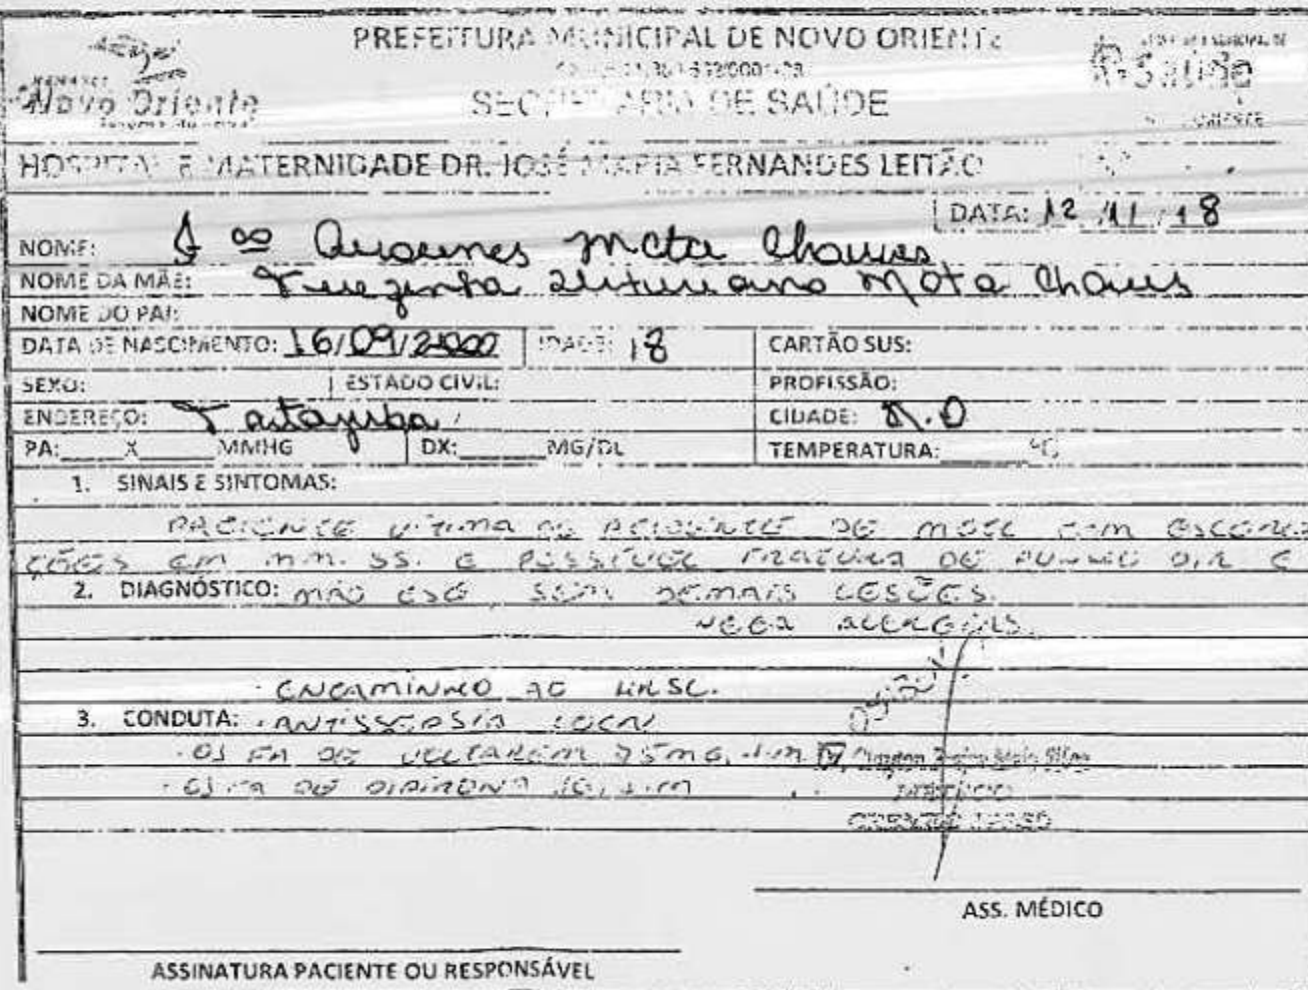 PREFEITURA MUNICIPAL DE NOVO ORIENTE
Novo Oriente
Saúde
SECRETARIA DE SAÚDE
HOSPITAL E MATERNIDADE DR. JOSÉ MARIA FERNANDES LEITÃO
DATA: 12 /11/18
NOME: Mota Chaves
NOME DA MÃE: Terezinha Mota Chaves
NOME DO PAI:
DATA DE NASCIMENTO: 16/09/2000 IDADE: 18 CARTÃO SUS:
SEXO: ESTADO CIVIL: PROFISSÃO:
ENDEREÇO: CIDADE: N.O
PA:____X____MMHG DX:____MG/DL TEMPERATURA:____ºC
1. SINAIS E SINTOMAS:
PACIENTE VITIMA DE ACIDENTE DE MOTO COM ESCORIA
ÇÕES EM MM. SS. E POSSÍVEL FRATURA DE PUNHO DIR E
2. DIAGNÓSTICO: MÃO ESQ, SEM DEMAIS LESÕES.
NEGA ALERGIAS.
ENCAMINHO AO
3. CONDUTA: · ANTISSEPSIA LOCAL
· 01 FA DE VOLTAREM 75MG, IM
· 01 FA DE DIPIRONA IM
MÉDICO
ASS. MÉDICO
ASSINATURA PACIENTE OU RESPONSÁVEL